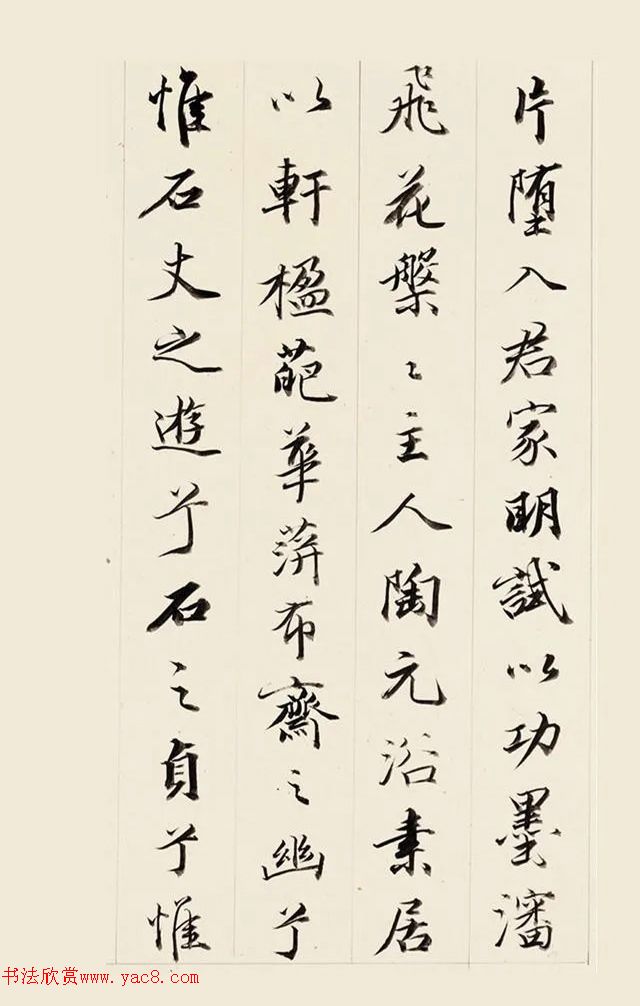 片堕入君家明試以功墨瀋
飛花槃〻主人陶元浴素居
以軒楹葩華蓱布齋之幽兮
惟石丈之遊兮石之貞兮惟
书法欣赏www.yac8.com